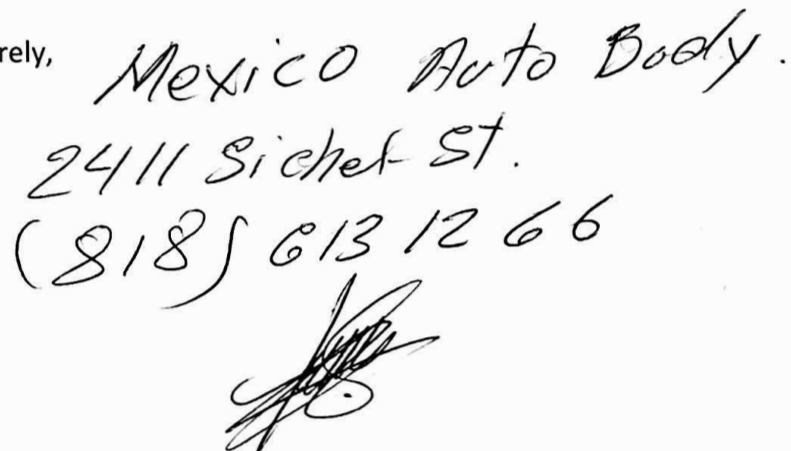 rely, Mexico Auto Body.
2411 Sichel St.
(818) 613 12 66